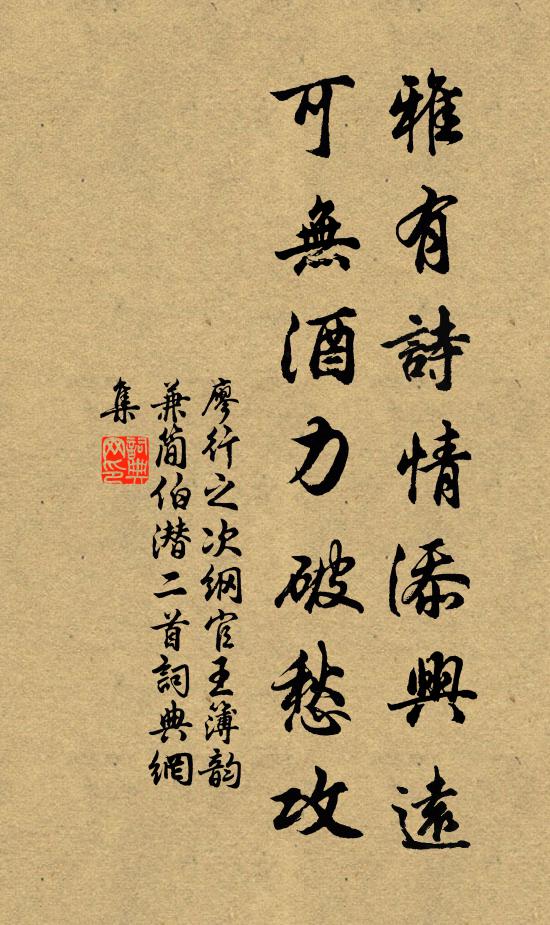 雅有詩情添興遠
可無酒力破愁攻
廖行之次綱官王簿韵
兼简伯潜二首詞典網
集
詞典網印